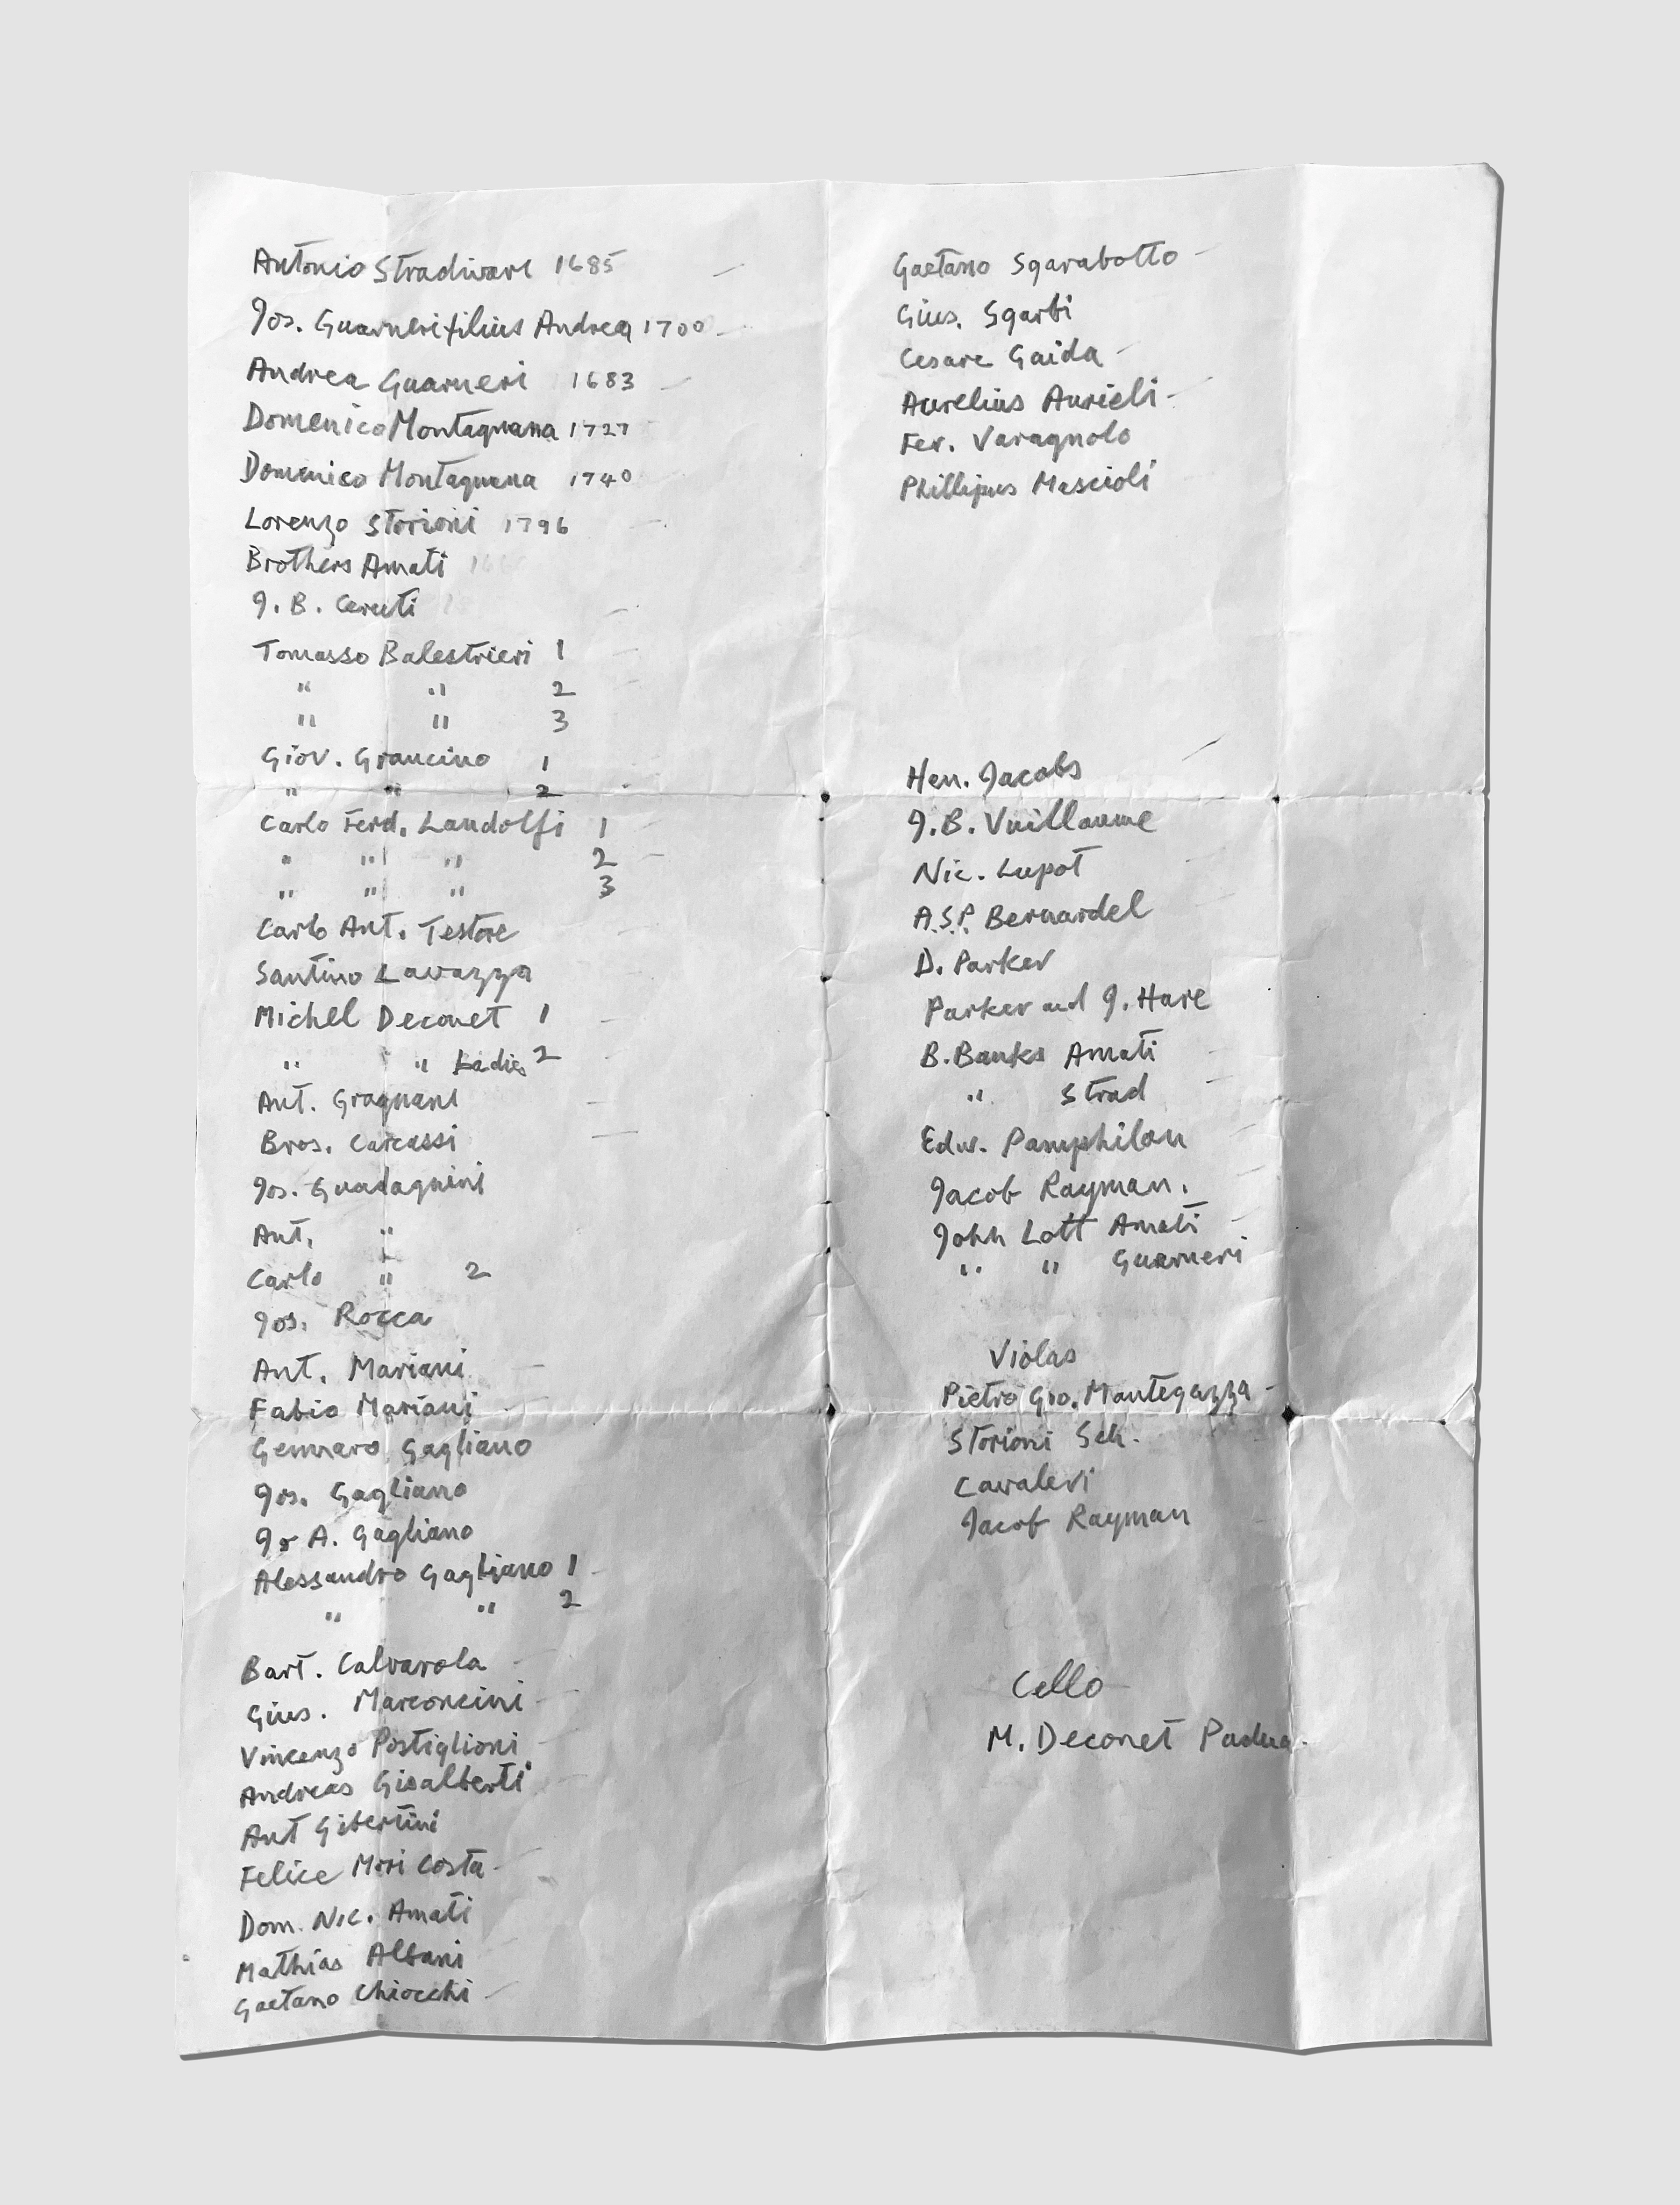 Antonio Stradivari 1685
Jos. Guarneri filius Andrea 1700
Andrea Guarneri 1683
Domenico Montagnana 1727
Domenico Montagnana 1740
Lorenzo Storioni 1796
Brothers Amati
J. B. Ceruti
Tomasso Balestrieri 1
" " 2
" " 3
Giov. Grancino 1
" " 2
Carlo Ferd. Landolfi 1
" " " 2
" " " 3
Carlo Ant. Testore
Santino Lavazza
Michel Deconet 1
" " Ladies 2
Ant. Gragnani
Bros. Carcassi
Jos. Guadagnini
Ant. "
Carlo " 2
Jos. Rocca
Ant. Mariani
Fabio Mariani
Gennaro Gagliano
Jos. Gagliano
A. Gagliano
Alessandro Gagliano 1
" " 2
Bart. Calvarola
Gius. Marconcini
Vincenzo Postiglioni
Andreas Gisalberti
Ant Gibertini
Felice Mori Costa
Dom. Nic. Amati
Mathias Albani
Gaetano Chiocchi
Gaetano Sgarabotto
Gius. Sgarbi
Cesare Gaida
Aurelius Aurieli
Fer. Varagnolo
Phillipus Mascioli
Hen. Jacobs
J.B. Vuillaume
Nic. Lupot
A.S.P. Bernardel
D. Parker
Parker and J. Hare
B. Banks Amati
" Strad
Edw. Pamphilon
Jacob Rayman.
John Lott Amati
" " Guarneri
Violas
Pietro Gio. Mantegazza
Storioni Sch.
Cavaleri
Jacob Rayman
Cello
M. Deconet Padua.